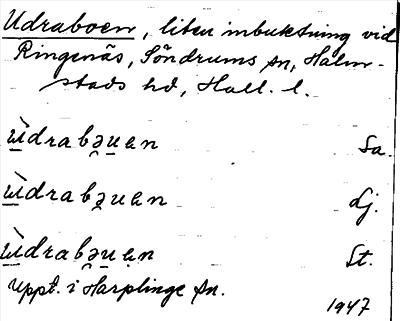 Udraboen, liten inbuktning vid
Ringenäs, Söndrums sn, Halm-
stads hd, Hall. l.
ùdrabəuen Sa.
ùdrabəuen Lj.
ùdrabəuen St.
uppt. i Harplinge sn.
1947